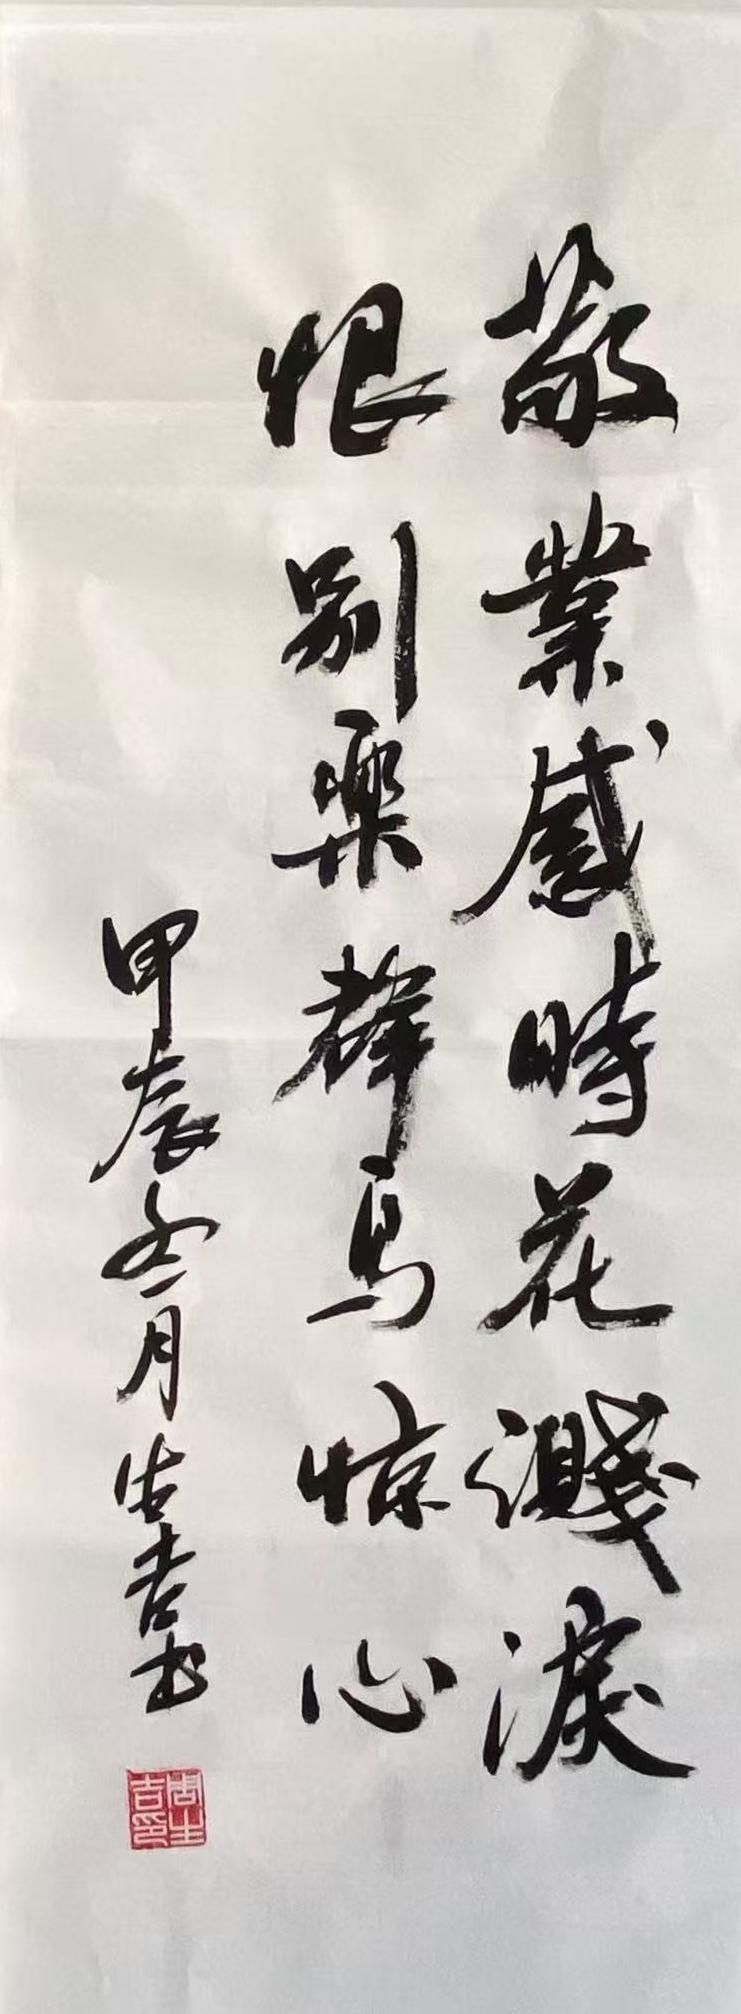 敬業感時花濺淚
恨别樂群鳥惊心
甲辰冬月生吉书
周生吉印